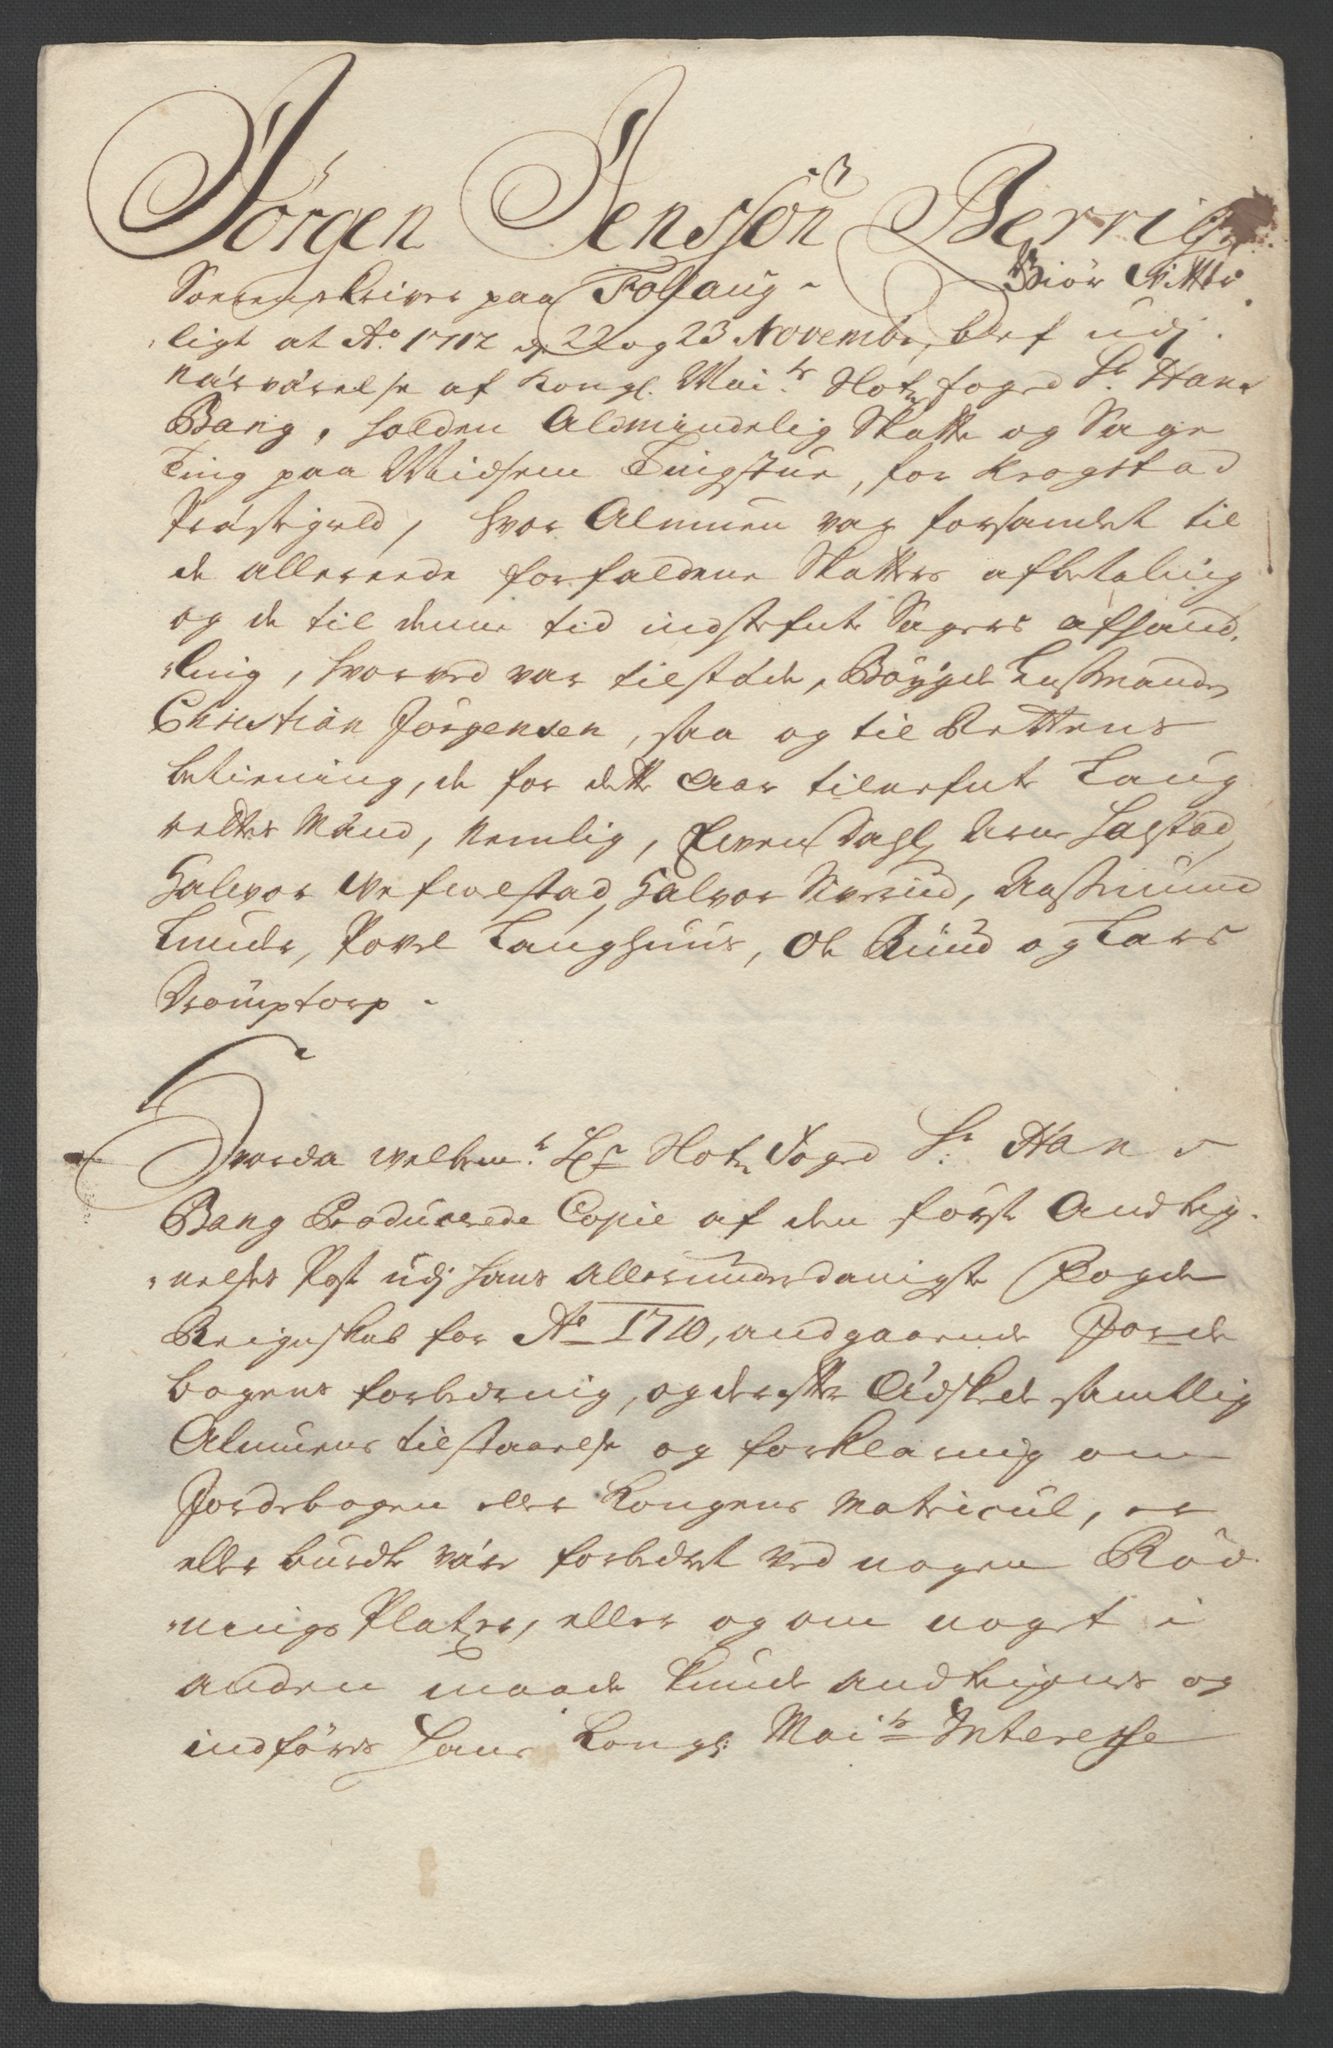 Jørgen Jenssøn Berrig
Sorenskriver paa Folloug – Giør Vitter
ligt at A.o 1712 d. 22 og 23 November, blef udj
nærværelse af Kongl. Mai.ts Foged Sr. Hans
Bang, holden Almindelig Skatte og Sage
Ting paa Midsem Tingstue, for Krogstad
Præstegield, hvor Almuen var forsamlet til
de allereede forfaldene Skatters afbetaling
og de til denne tid indstefnte Sagers afhand-
ling, hvorved var tilstæde, Bøygde Lensmanden
Christian Jörgensen, saa og til Rettens
betiening, de for dette Aar tilnefnte Laug
rettes Mænd, Nemlig, Efven Dahl, Arne
Halvor Halvor Siverud, Aasmund
Lunde, Povel Langhuus, Ole Ruud og Lars
Drømptorp –
Hvorda welbem.te Hr. Foged Sr. Hans
Bang Producerede Copie af den første Andteg-
nelses Post udj hans allerunderdanigste Fogde
Reigenskab for A.o 1710, andgaaende Jorde
bogens forbedring, og derefter Æskede samtlig
Almuens tilstaaelse og forklaring om
Jordebogen eller Kongens Matricul, er
eller burde være forbedret ved nogen Rød-
nings Platzer, eller og om noget i
anden maade kunde andtegnes og
indføres Hans Kongl: Mai.ts Interesse